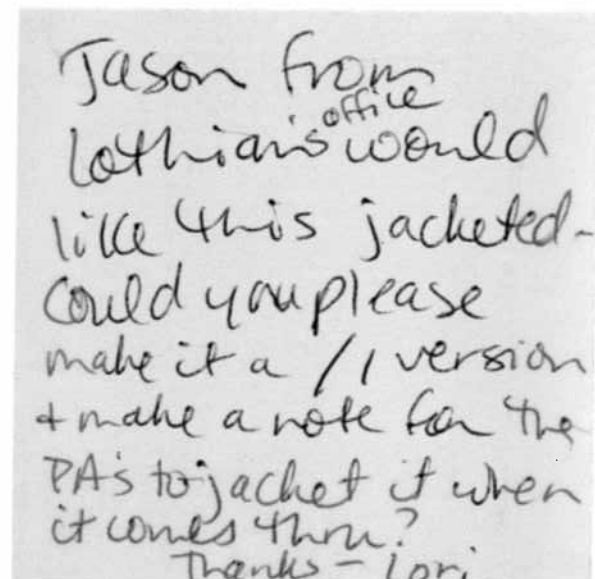 Jason from
Lothian's office would
like this jacketed -
Could you please
make it a /1 version
+ make a note for the
PA's to jacket it when
it comes thru?
Thanks - Lori